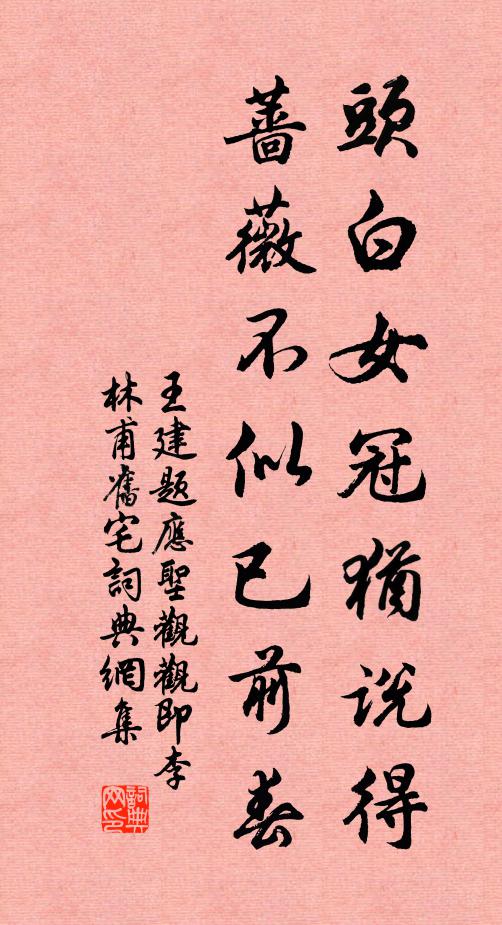 頭白女冠猶説得
薔薇不似已前春
王建題應聖觀觀即李
林甫舊宅詞典網集
詞典
网印